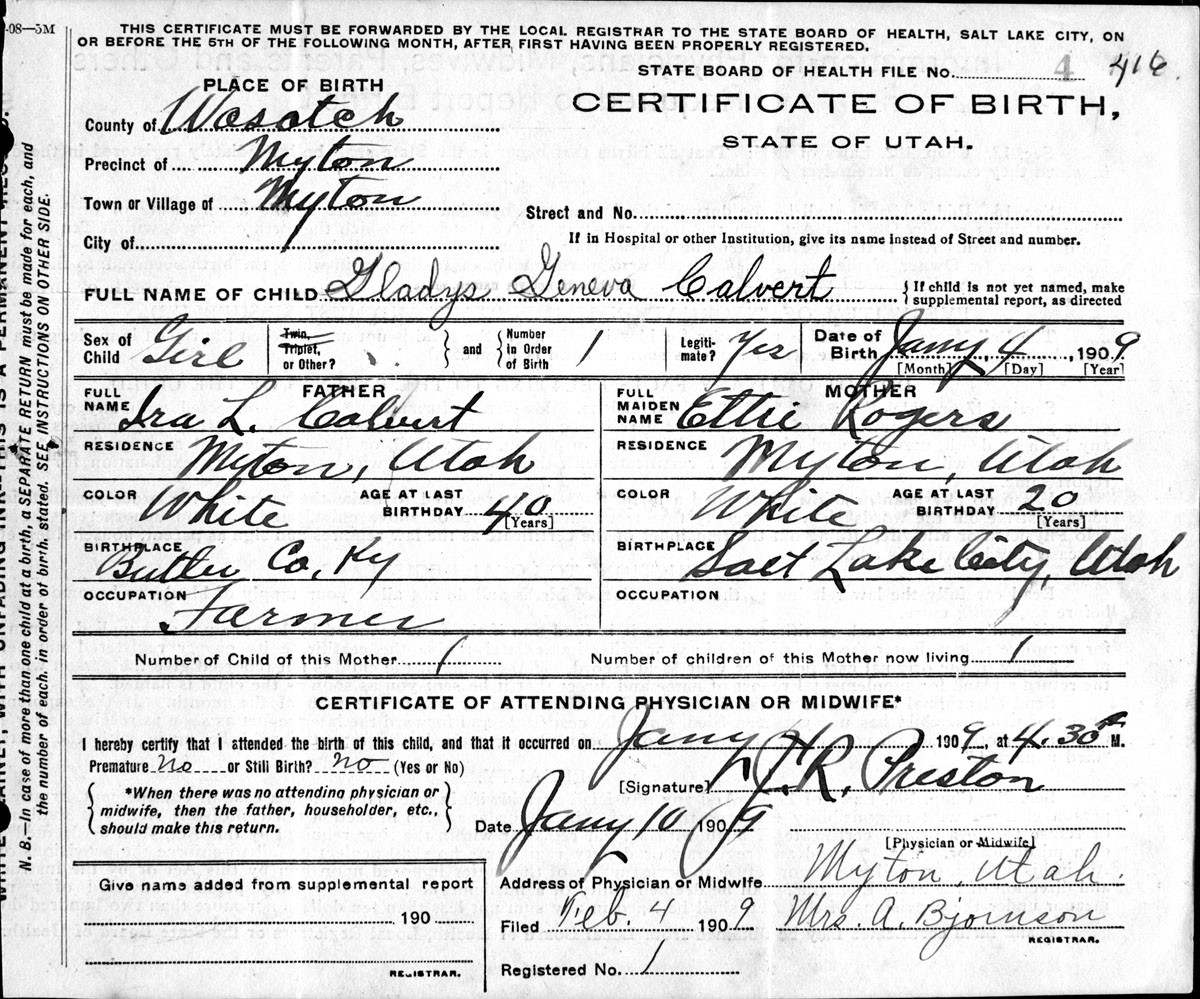 -08—5M
THIS CERTIFICATE MUST BE FORWARDED BY THE LOCAL REGISTRAR TO THE STATE BOARD OF HEALTH, SALT LAKE CITY, ON
OR BEFORE THE 5TH OF THE FOLLOWING MONTH, AFTER FIRST HAVING BEEN PROPERLY REGISTERED.
STATE BOARD OF HEALTH FILE No. 4 416
PLACE OF BIRTH
CERTIFICATE OF BIRTH,
STATE OF UTAH.
County of Wasatch
Precinct of Myton
Town or Village of Myton
Street and No.
City of
If in Hospital or other Institution, give its name instead of Street and number.
FULL NAME OF CHILD Gladys Geneva Calvert { If child is not yet named, make
supplemental report, as directed
Sex of Child Girl Twin, Triplet, or Other? } and { Number in Order of Birth 1 Legiti-mate? Yes Date of Birth Jany 4, 1909
[Month] [Day] [Year]
FATHER MOTHER
FULL NAME Ira L. Calvert FULL MAIDEN NAME Ettie Rogers
RESIDENCE Myton, Utah RESIDENCE Myton, Utah
COLOR White AGE AT LAST BIRTHDAY 40 [Years] COLOR White AGE AT LAST BIRTHDAY 20 [Years]
BIRTHPLACE Butler Co, Ky BIRTHPLACE Salt Lake City, Utah
OCCUPATION Farmer OCCUPATION
Number of Child of this Mother 1 Number of children of this Mother now living 1
CERTIFICATE OF ATTENDING PHYSICIAN OR MIDWIFE*
I hereby certify that I attended the birth of this child, and that it occurred on Jany 4 1909, at 4.30 A M.
Premature No or Still Birth? No (Yes or No)
[Signature] R. Preston
{ *When there was no attending physician or
midwife, then the father, householder, etc.,
should make this return. }
Date Jany 10 1909
[Physician or Midwife]
Give name added from supplemental report
190
REGISTRAR.
Address of Physician or Midwife Myton, Utah.
Filed Feb. 4 1909 Mrs. A. Bjornson
REGISTRAR.
Registered No. 1
N. B.—In case of more than one child at a birth, a SEPARATE RETURN must be made for each, and
the number of each, in order of birth, stated. SEE INSTRUCTIONS ON OTHER SIDE.